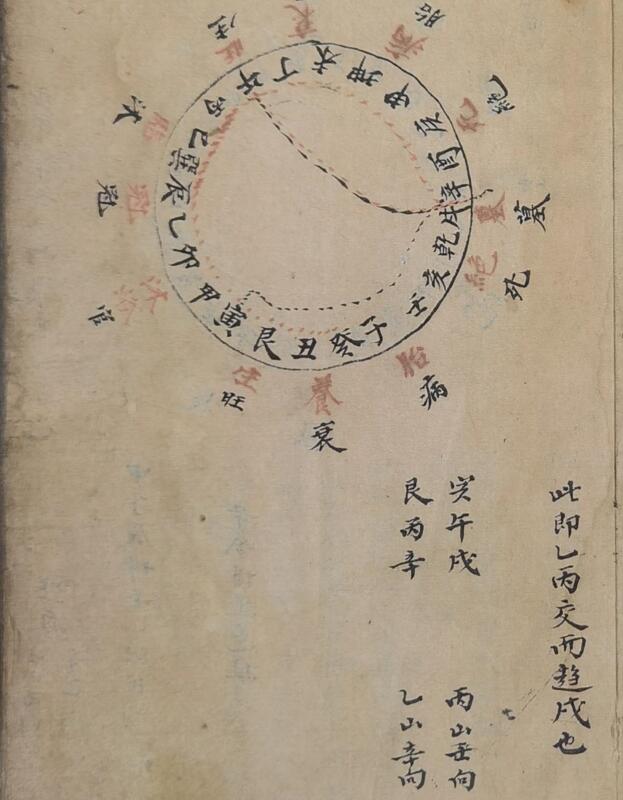 此即乙丙交而趍戌也
寅午戌
丙山壬向
艮丙辛
乙山辛向
子癸丑艮寅甲卯乙辰巽巳丙午丁未坤申庚酉辛戌乾亥壬
胎
墓
死
病
衰
旺
官
冠
沐
生
病
墓
絕
胎
養
生
沐浴
冠
旺